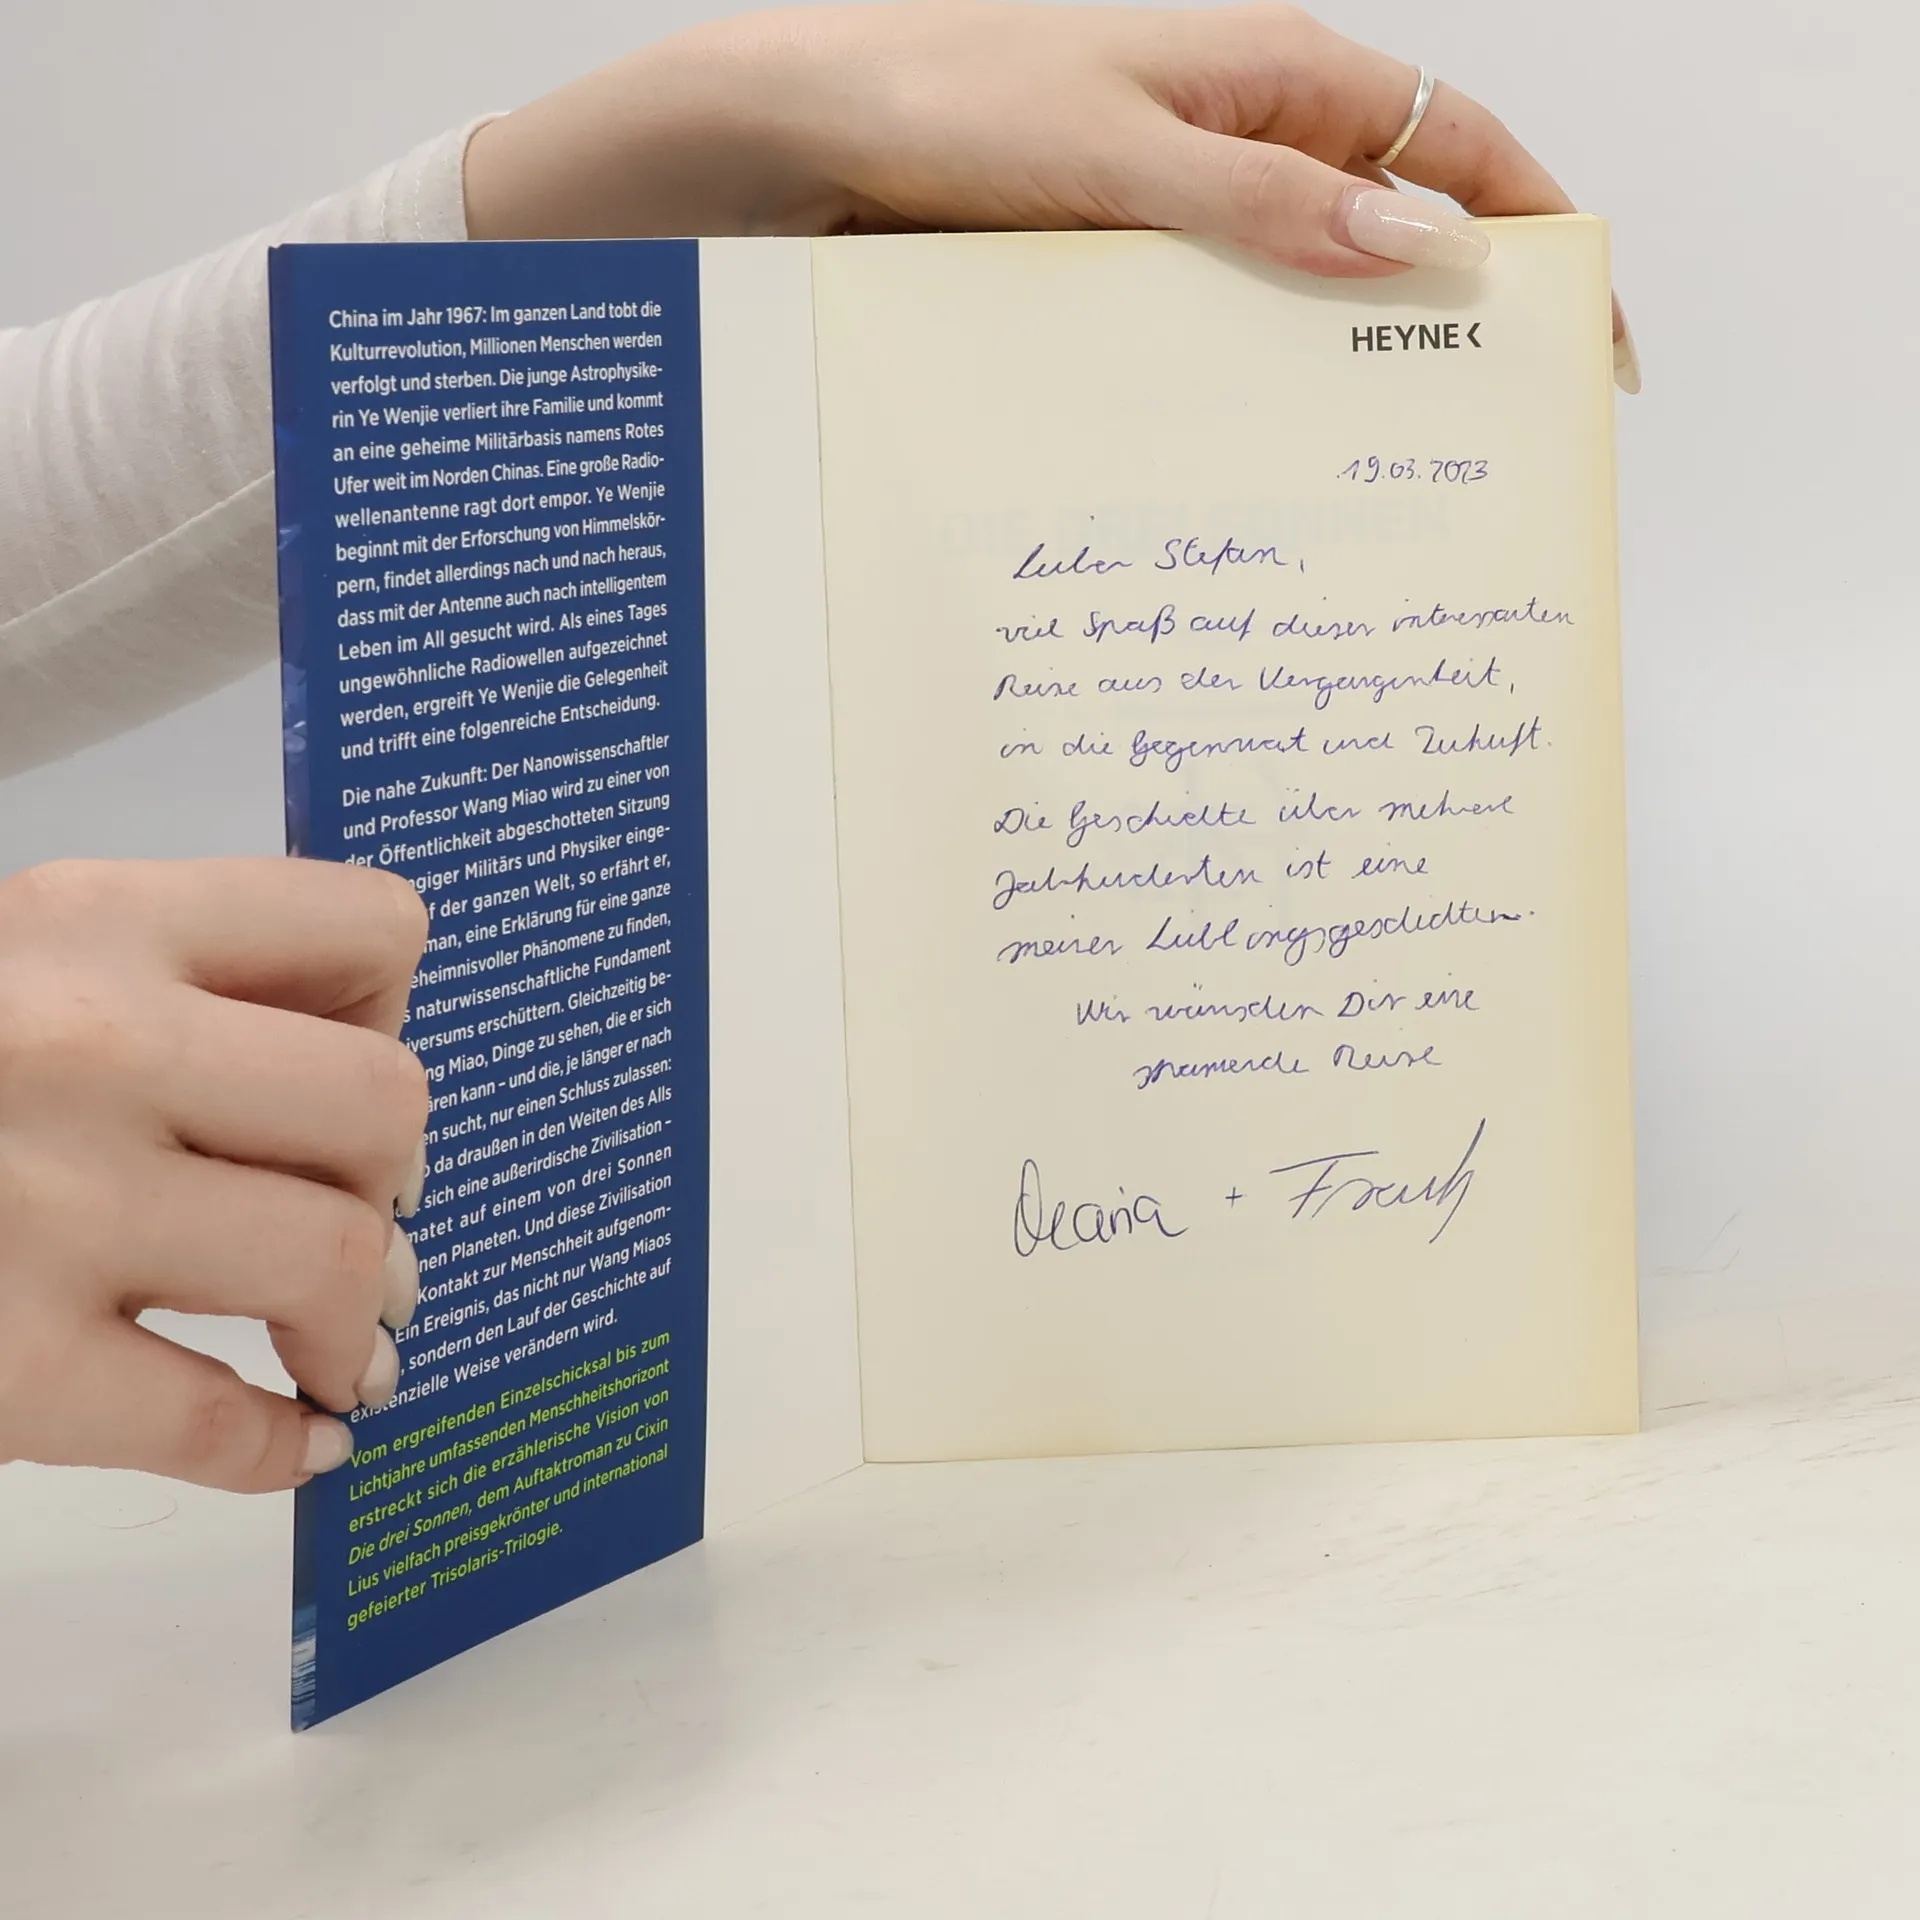 China im Jahr 1967: Im ganzen Land tobt die
Kulturrevolution, Millionen Menschen werden
verfolgt und sterben. Die junge Astrophysike-
rin Ye Wenjie verliert ihre Familie und kommt
an eine geheime Militärbasis namens Rotes
Ufer weit im Norden Chinas. Eine große Radio-
wellenantenne ragt dort empor. Ye Wenjie
beginnt mit der Erforschung von Himmelskör-
pern, findet allerdings nach und nach heraus,
dass mit der Antenne auch nach intelligentem
Leben im All gesucht wird. Als eines Tages
ungewöhnliche Radiowellen aufgezeichnet
werden, ergreift Ye Wenjie die Gelegenheit
und trifft eine folgenreiche Entscheidung.
Die nahe Zukunft: Der Nanowissenschaftler
und Professor Wang Miao wird zu einer von
der Öffentlichkeit abgeschotteten Sitzung
giger Militärs und Physiker einge-
f der ganzen Welt, so erfährt er,
man, eine Erklärung für eine ganze
eheimnisvoller Phänomene zu finden,
s naturwissenschaftliche Fundament
iversums erschüttern. Gleichzeitig be-
ng Miao, Dinge zu sehen, die er sich
ären kann – und die, je länger er nach
en sucht, nur einen Schluss zulassen:
o da draußen in den Weiten des Alls
sich eine außerirdische Zivilisation –
matet auf einem von drei Sonnen
nen Planeten. Und diese Zivilisation
Kontakt zur Menschheit aufgenom-
Ein Ereignis, das nicht nur Wang Miaos
, sondern den Lauf der Geschichte auf
existenzielle Weise verändern wird.
Vom ergreifenden Einzelschicksal bis zum
Lichtjahre umfassenden Menschheitshorizont
erstreckt sich die erzählerische Vision von
Die drei Sonnen, dem Auftaktroman zu Cixin
Lius vielfach preisgekrönter und international
gefeierter Trisolaris-Trilogie.
HEYNE<
19.03.2023
Lieber Stefan,
viel Spaß auf dieser interessanten
Reise aus der Vergangenheit,
in die Gegenwart und Zukunft.
Die Geschichte über mehrere
Jahrhunderten ist eine
meiner Lieblingsgeschichten.
Wir wünschen Dir eine
spannende Reise
+ Frank